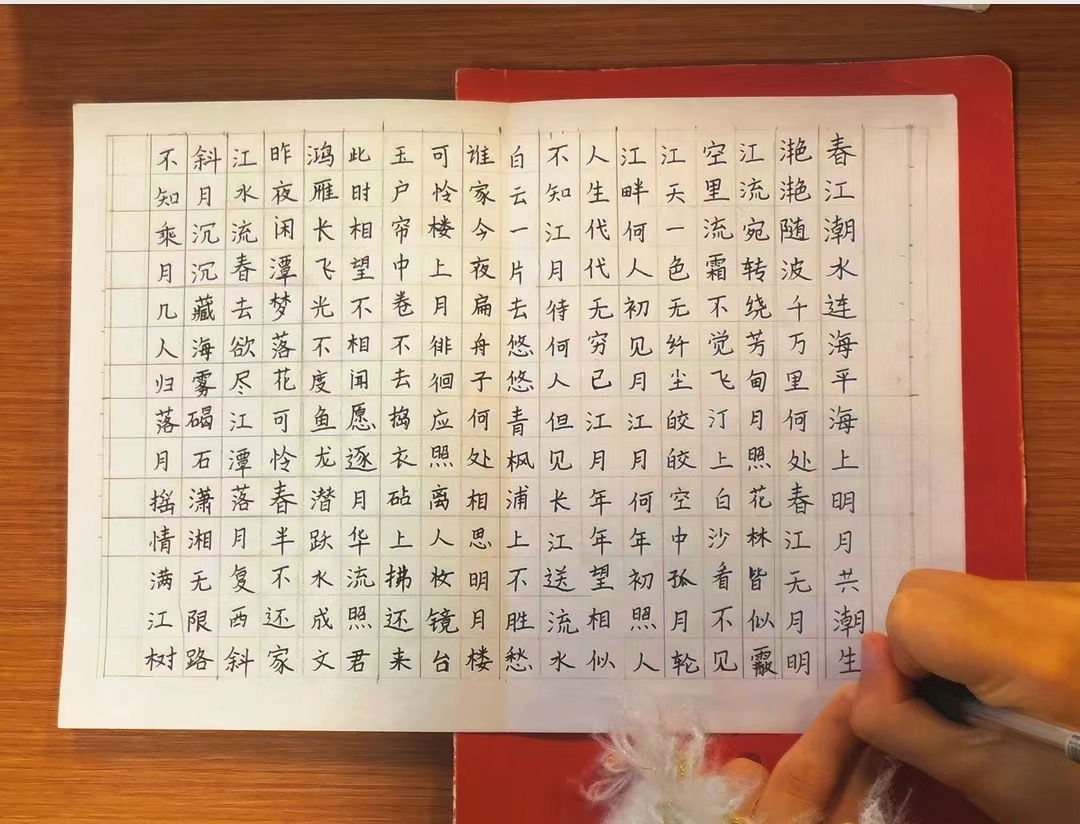 春江潮水连海平海上明月共潮生
滟滟随波千万里何处春江无月明
江流宛转绕芳甸月照花林皆似霰
空里流霜不觉飞汀上白沙看不见
江天一色无纤尘皎皎空中孤月轮
江畔何人初见月江月何年初照人
人生代代无穷已江月年年望相似
不知江月待何人但见长江送流水
白云一片去悠悠青枫浦上不胜愁
谁家今夜扁舟子何处相思明月楼
可怜楼上月徘徊应照离人妆镜台
玉户帘中卷不去捣衣砧上拂还来
此时相望不相闻愿逐月华流照君
鸿雁长飞光不度鱼龙潜跃水成文
昨夜闲潭梦落花可怜春半不还家
江水流春去欲尽江潭落月复西斜
斜月沉沉藏海雾碣石潇湘无限路
不知乘月几人归落月摇情满江树